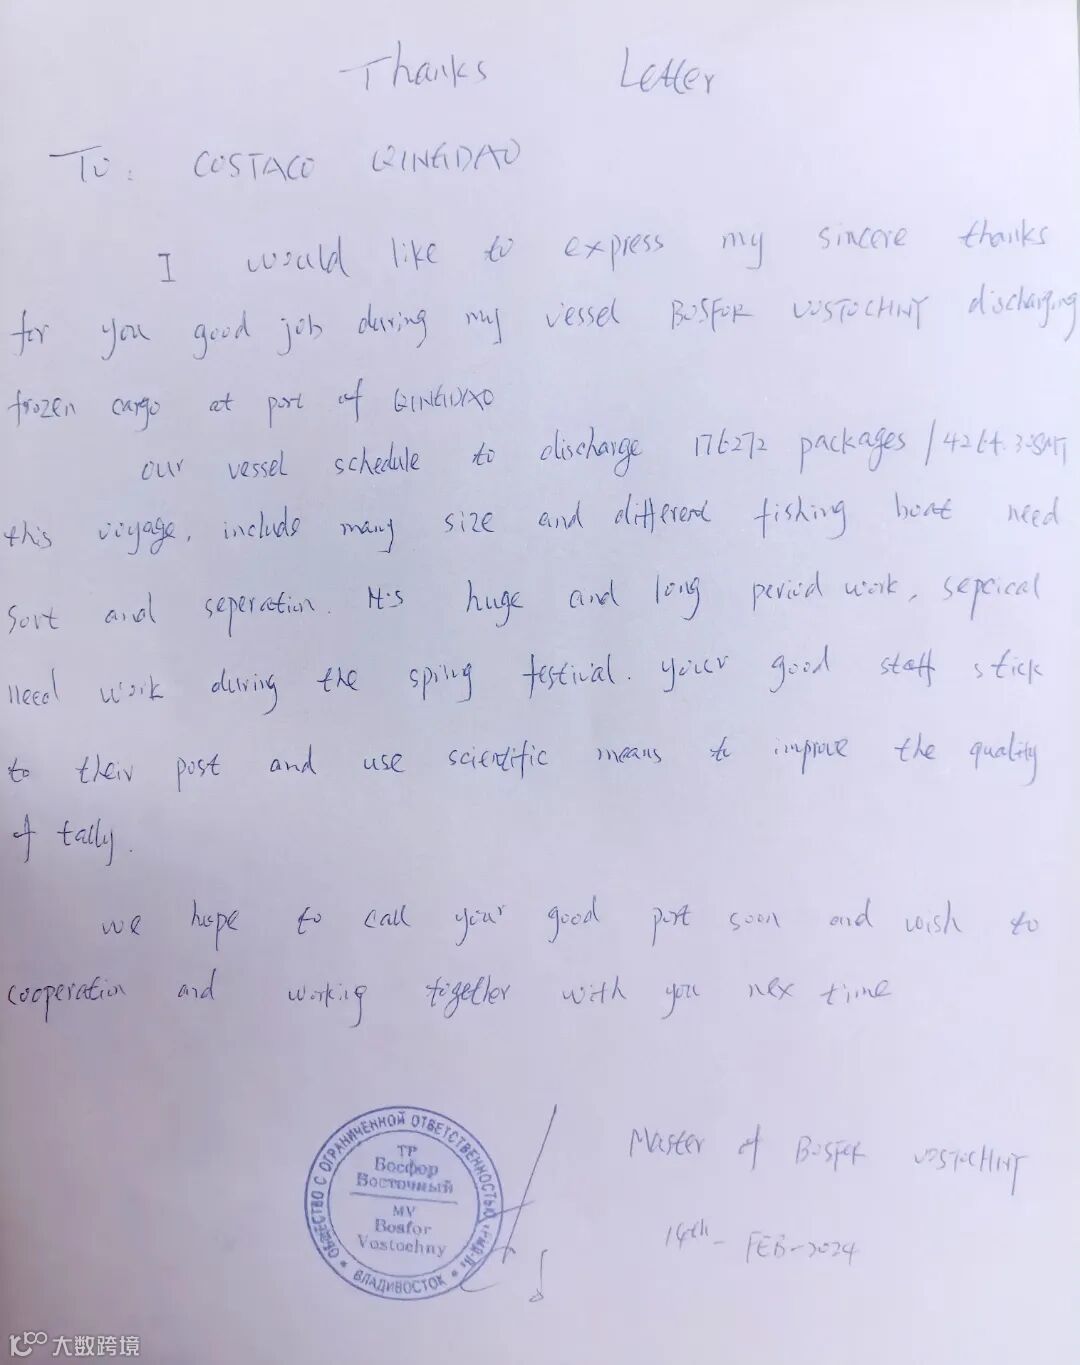 Thanks Letter
To: COSTACO QINGDAO
I would like to express my sincere thanks
for you good job during my vessel BOSFOR VOSTOCHNY discharging
frozen cargo at port of QINGDAO
our vessel schedule to discharge 176272 packages /
this voyage, include many size and different fishing boat need
sort and seperation. It's huge and long period work, sepcical
need work during the spring festival. your good staff stick
to their post and use scientific means to improve the quality
of tally.
we hope to call your good port soon and wish to
cooperation and working together with you nex time
Master of BOSFOR VOSTOCHNY
14th - FEB-2024
ОБЩЕСТВО С ОГРАНИЧЕННОЙ ОТВЕТСТВЕННОСТЬЮ
ТР
Босфор
Восточный
MV
Bosfor
Vostochny
ВЛАДИВОСТОК
大数跨境